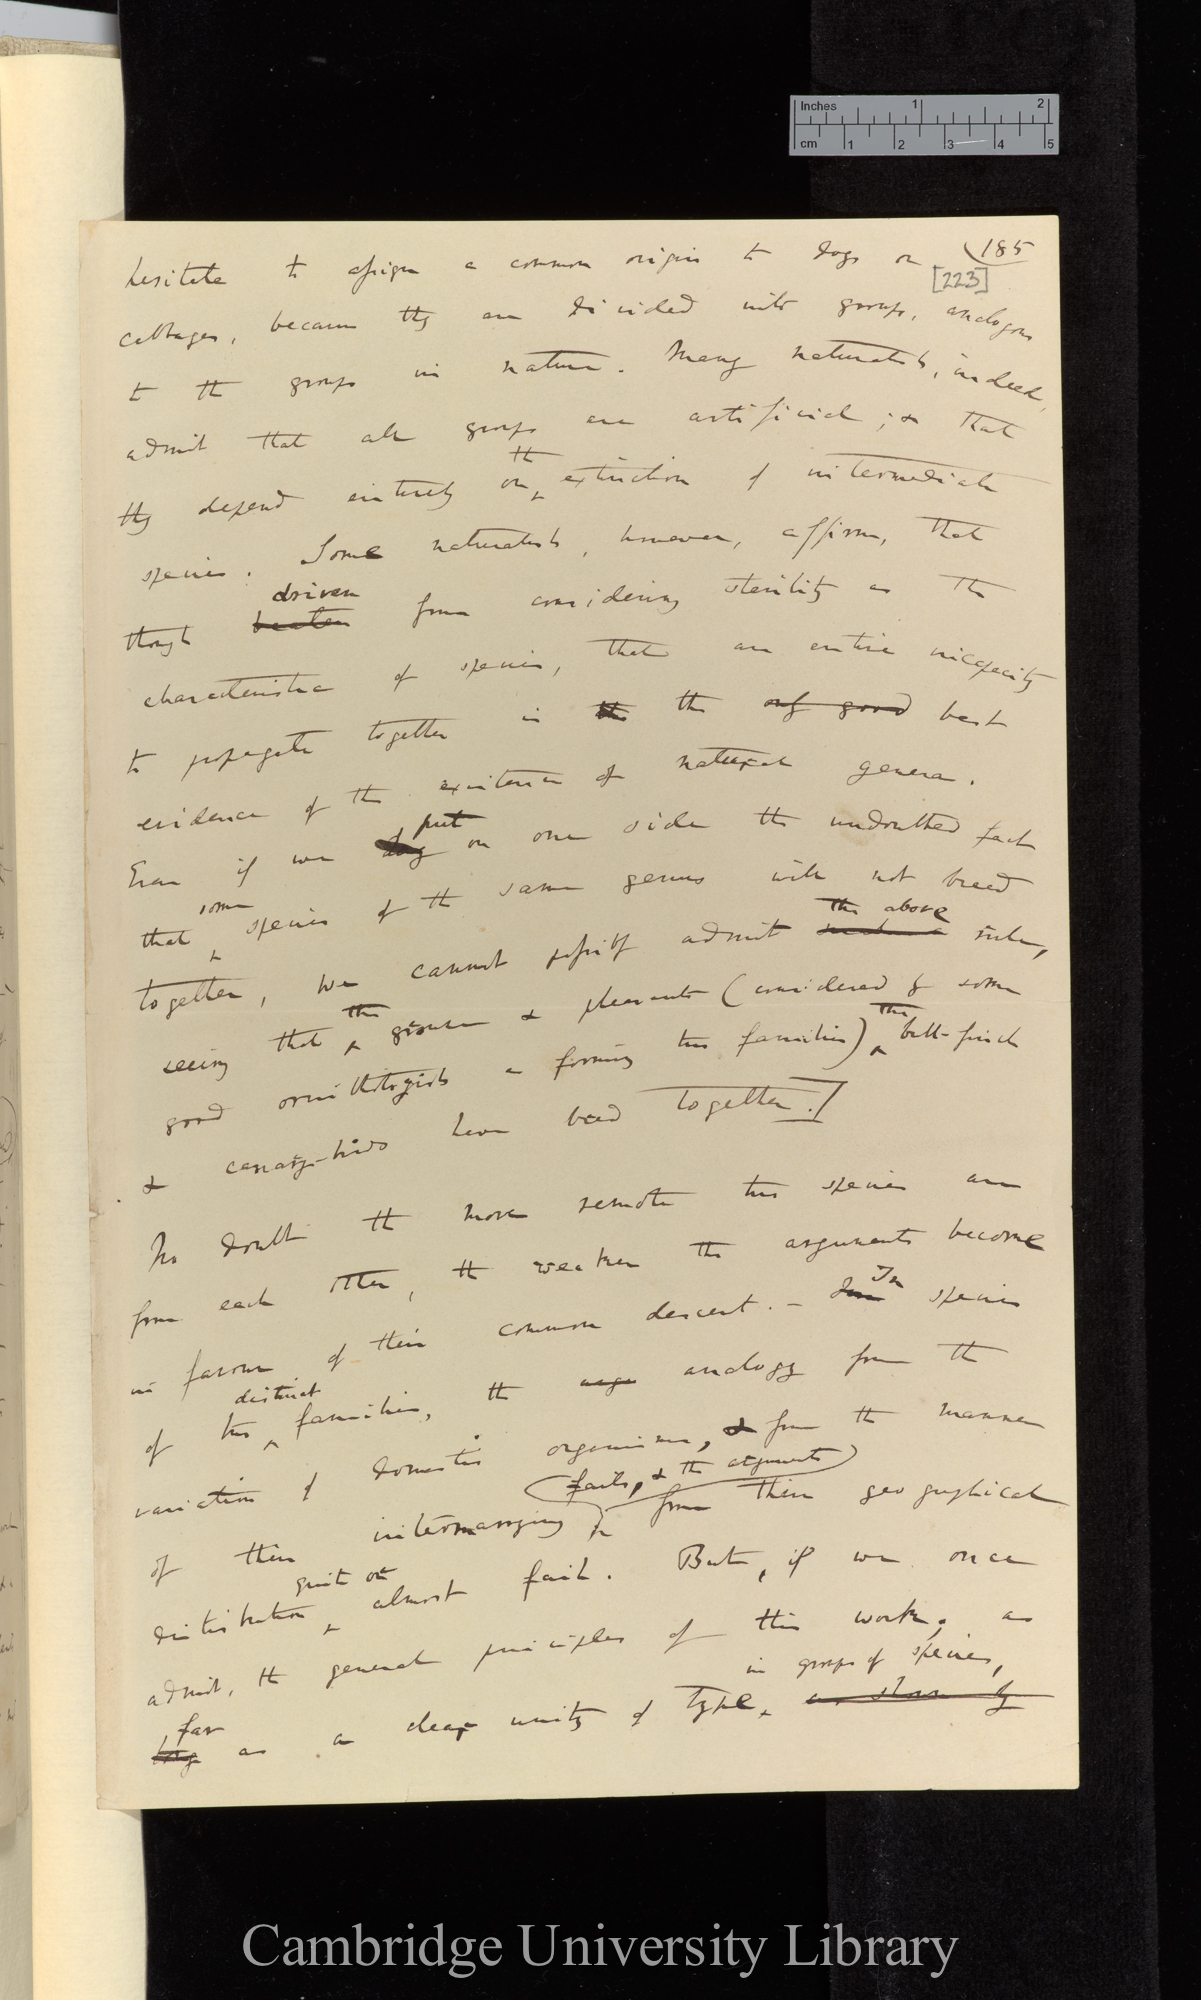 Inches 1 2
cm 1 2 3 4 5
185
[223]
hesitate to assign a common origin to dogs or
cabbages, because they are divided into groups, analogous
to the groups in nature. Many naturalists, indeed,
admit that all groups are artificial; & that
the
they depend entirely on extinction of intermediate
species. Some naturalists, however, affirm, that
driven
though beaten from considering sterility as the
characteristic of species, that an entire incapacity
to propagate together is the the only good best
evidence of the existence of natural genera.
put
Even if we on one side the undoubted fact
some
that species of the same genus will not breed
the above
together, we cannot possibly admit such a rule,
the
seeing that grouse & pheasants (considered by some
the
good ornithologists as forming two families) bull-finch
& canary-birds have bred together.]
No doubt the more remote two species are
from each other, the weaker the arguments become
in favour of their common descent. —
In
species
distinct
of two families, the analogy from the
variation of domestic organisms, & from the manner
fails, & the arguments
of their intermarrying from their geographical
quite or
distribution almost fail. But, if we once
admit, the general principles of this work, as
in groups of species,
far
as a clear unity of type, as shown by
Cambridge University Library